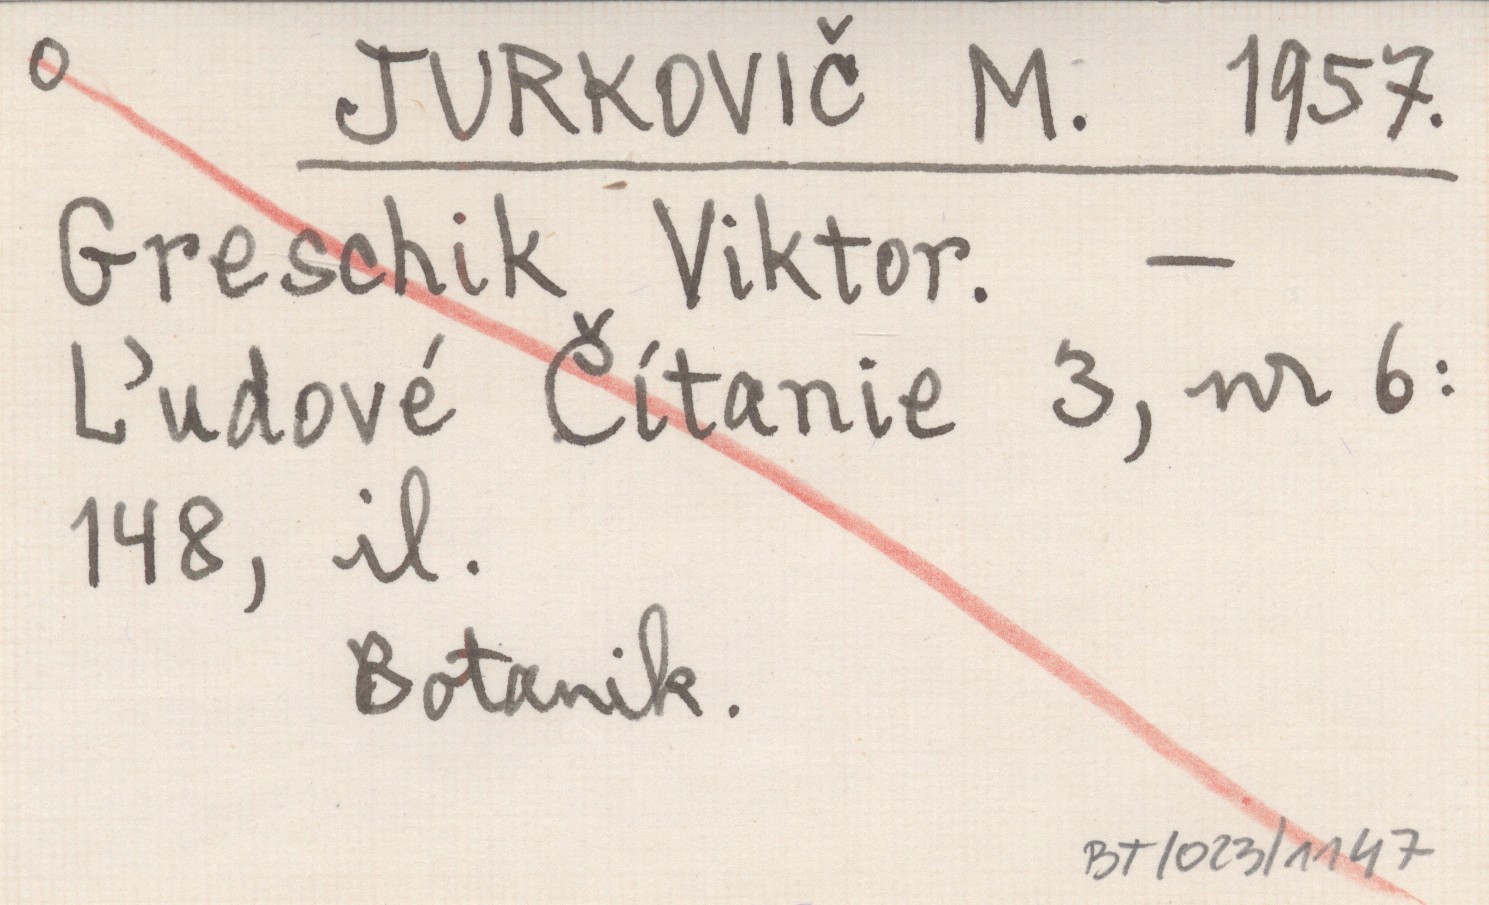 O JURKOVIČ M. 1957.
Greschik Viktor. —
Ľudové Čítanie 3, nr 6:
148, il.
Botanik.
BT/023/1147